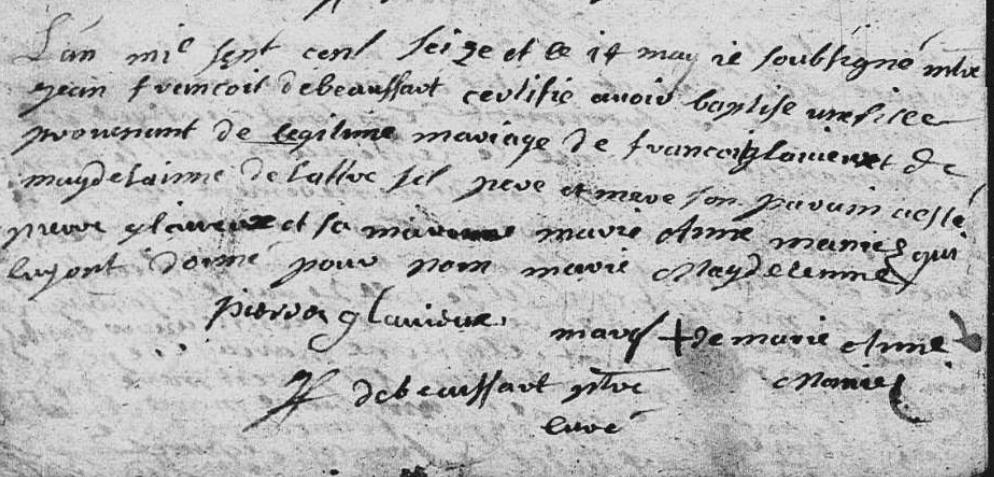 L'an mil sept cent seize et le 14 may ie soubsigné mtre
jean francois debeaussart certifie avoir baptise une fille
provenant de legitime mariage de francois glavieux et de
maydelainne delattre ses pere et mere son parain a esté
pierre glavieux et sa maraine marie Anne maniez qui
luy ont donné pour nom marie Maydelenne
pierre glavieux
marq + de marie Anne
Maniez
JF debeaussart ptre
curé